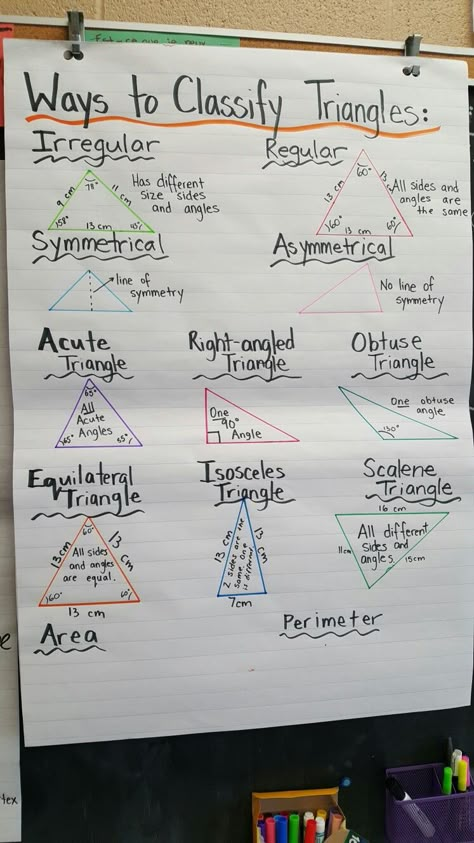 Ways to Classify Triangles:
Irregular
9 cm
78°
11 cm
13 cm
Has different
size sides
and angles
Regular
60°
13 cm
13 c
60°
13 cm
60°
All sides and
angles are
the same
Symmetrical
line of
symmetry
Asymmetrical
No line of
symmetry
Acute
Triangle
65°
All
Acute
Angles
65°
55°
Right-angled
Triangle
One
90°
Angle
Obtuse
Triangle
One obtuse
angle
130°
Equilateral
Triangle
60°
13 cm
13 cm
All sides
and angles
are equal.
60°
60°
13 cm
Isosceles
Triangle
13 cm
13 cm
2 sides are the
same. One
is different
7cm
Scalene
Triangle
16 cm
All different
sides and
angles.
11cm
15cm
Area
Perimeter